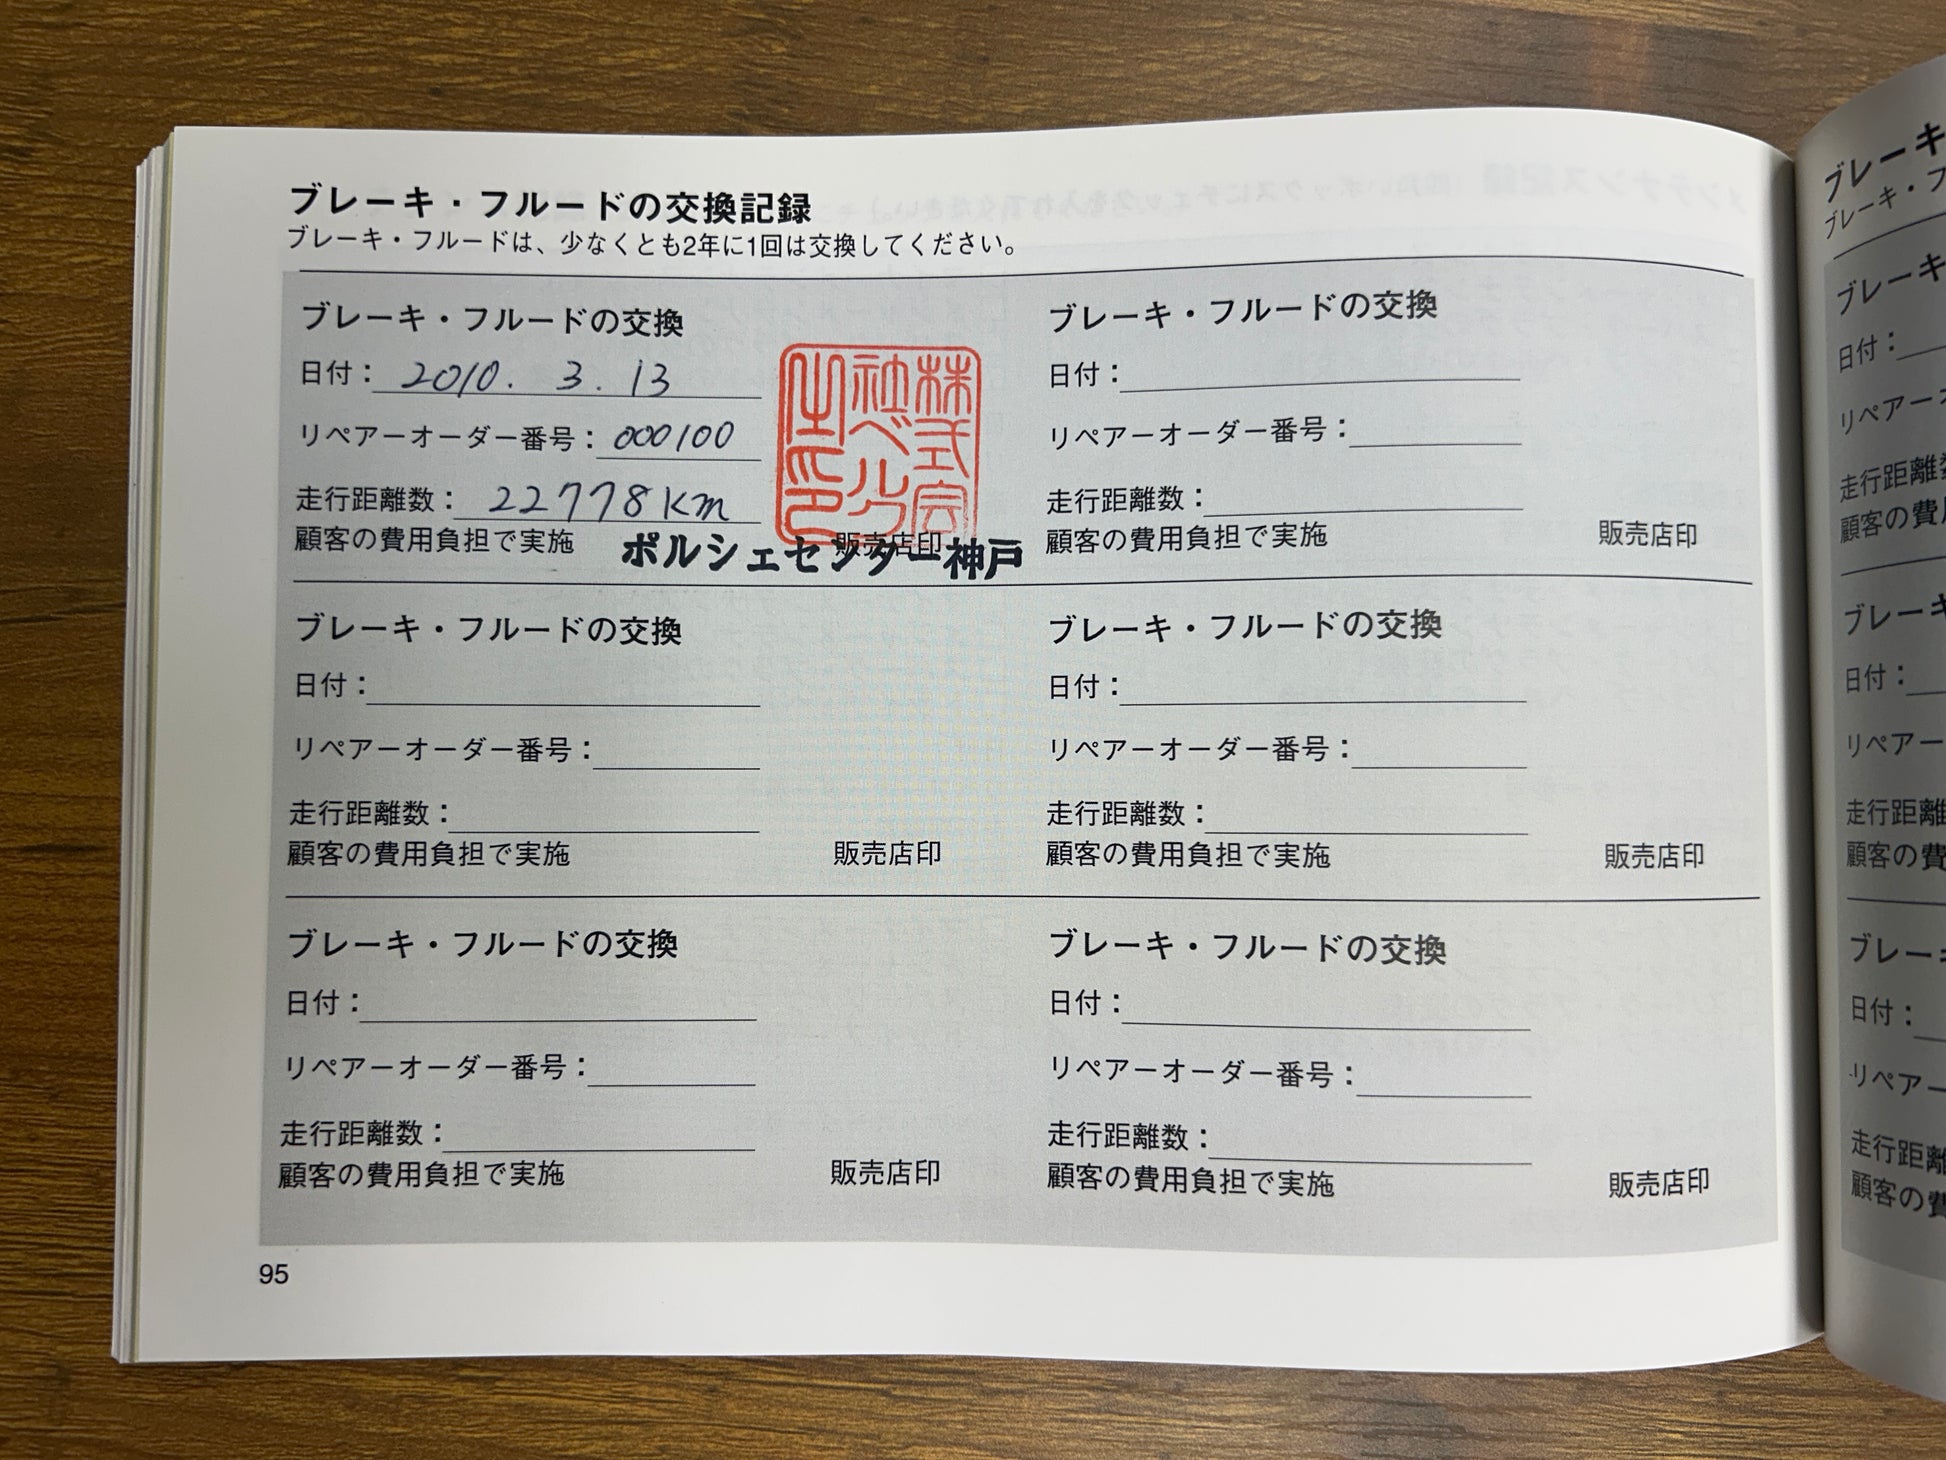 ブレーキ・フルードの交換記録
ブレーキ・フルードは、少なくとも2年に1回は交換してください。
ブレーキ・フルードの交換
日付：2010. 3. 13
リペアーオーダー番号：000100
走行距離数：22778km
顧客の費用負担で実施
販売店印
株式会
社ベルク
之印
ポルシェセンター神戸
ブレーキ・フルードの交換
日付：
リペアーオーダー番号：
走行距離数：
顧客の費用負担で実施 販売店印
ブレーキ・フルードの交換
日付：
リペアーオーダー番号：
走行距離数：
顧客の費用負担で実施 販売店印
ブレーキ・フルードの交換
日付：
リペアーオーダー番号：
走行距離数：
顧客の費用負担で実施 販売店印
ブレーキ・フルードの交換
日付：
リペアーオーダー番号：
走行距離数：
顧客の費用負担で実施 販売店印
ブレーキ・フルードの交換
日付：
リペアーオーダー番号：
走行距離数：
顧客の費用負担で実施 販売店印
95
ブレーキ
ブレーキ・フ
ブレーキ
日付：
リペアーオ
走行距離数
顧客の費用
ブレーキ
日付：
リペアー
走行距離
顧客の費
ブレーキ
日付：
リペアー
走行距離
顧客の費